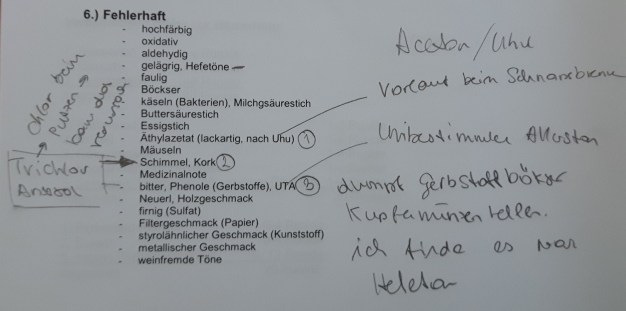 6.) Fehlerhaft
- hochfärbig
- oxidativ
- aldehydig
- gelägrig, Hefetöne
- faulig
- Böckser
- käseln (Bakterien), Milchgsäurestich
- Buttersäurestich
- Essigstich
- Äthylazetat (lackartig, nach Uhu) 1
- Mäuseln
- Schimmel, Kork 2
- Medizinalnote
- bitter, Phenole (Gerbstoffe), UTA 3
- Neuerl, Holzgeschmack
- firnig (Sulfat)
- Filtergeschmack (Papier)
- styrolähnlicher Geschmack (Kunststoff)
- metallischer Geschmack
- weinfremde Töne
Chlor beim
Putzen
kann das
Trichlor
Anisol
/Uhu
Vorlauf beim Schnapsbrennen
Unbestimmter Alterston
dumpf Gerbstoff
Kupfermünzen
ich finde es war